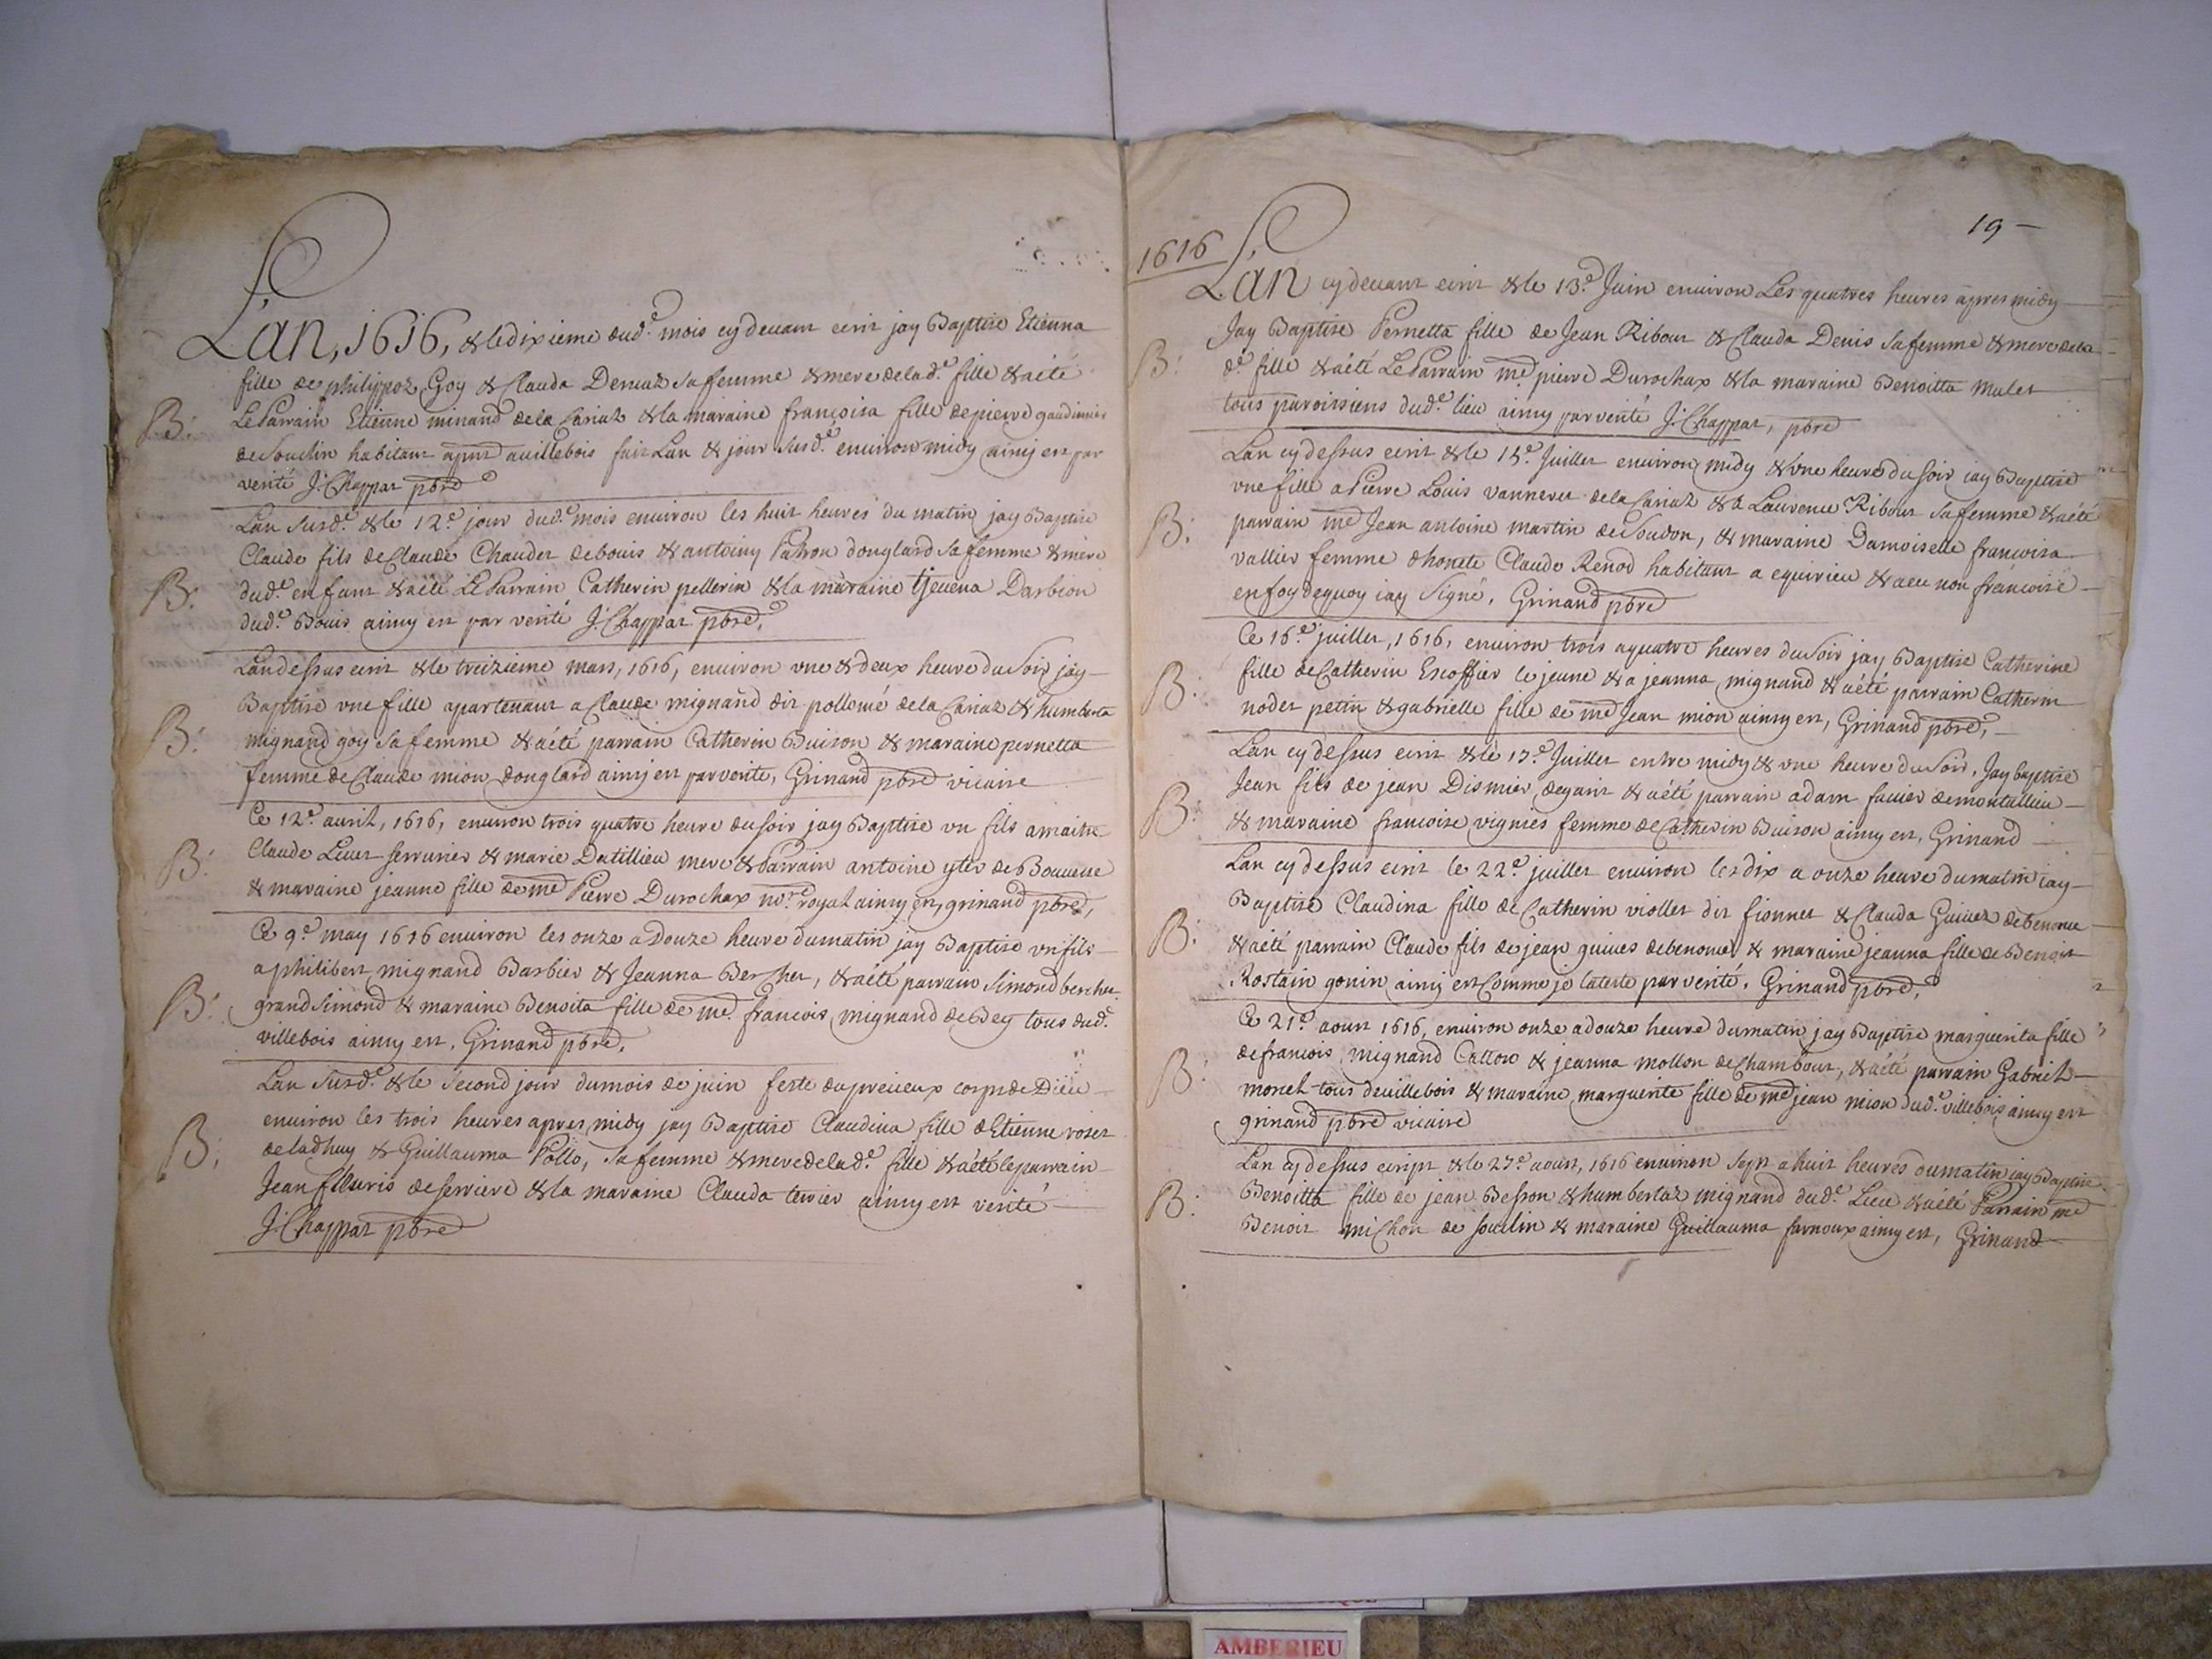 Lan, 1616, & le dixieme dud.e mois cy devant ecrit jay Baptise Etienna
fille de philippoz Goy & Clauda Deniaz sa femme & mere de lad.e fille & a eté
Le Parrain Etienne minand de la Cariaz & la maraine françoisa fille de pierre gaudinier
B: de Souclin habitant audit villebois fait Lan & jour susd.e environ midy ainsy est par
verité J. Chappat pbre
Lan susd.e & le 12.e jour dud.e mois environ les huit heures du matin jay Baptise
Claude fils de Claude Chaudet de bouis & antoiny Patron douglard sa femme & mere
B: dud.e enfant & a eté Le Parrain Catherin pellerin & la maraine Darbion
dud.e Bouis ainsy est par verité J. Chappat pbre,
Lan dessus ecrit & le treizieme mars, 1616, environ vne & deux heure du soir jay
Baptise vne fille apartenant a Claude mignand dit pollomé de la Cariaz & humberta
B: mignand goy sa femme & a eté parrain Catherin Buison & maraine pernetta
femme de Claude mion douglard ainsy est par verité, Grinand pbre vicaire
Ce 12.e avril, 1616, environ trois quatre heure du soir jay Baptise vn fils a maitre
B: Claude Livet serrurier & marie Dutillieu mere & Parrain antoine yter de Bouvesse
& maraine jeanne fille de me Pierre Durochax no.re royal ainsy est, grinand pbre,
Ce 9.e may 1616 environ les onze a Douze heure du matin jay Baptise vn fils
a philibert mignand Barbier & Jeanna Bercher, & a eté parrain Simond bercher
B: grand Simond & maraine Benoita fille de me. francois mignand de Bey tous dud.e
villebois ainsy est, Grinand pbre,
Lan susd.e & le second jour du mois de juin feste du precieux corps de Dieu
environ les trois heures apres midy jay Baptise Claudina fille d Etienne roset
B: de ladhuy & Guillauma Pollo, sa femme & mere de lad.e fille & a eté le parrain
Jean de serriere & la maraine Clauda terrier ainsy est verité
J. Chappat pbre
19
1616
Lan cy devant ecrit & le 13.e Juin environ Les quatres heures apres midy
Jay Baptise Pernetta fille de Jean Ribout & Clauda Denis sa femme & mere de la
B: d.e fille & a eté Le Parrain me pierre Durochax & la maraine Benoitta Mulet
tous paroissiens dud.e lieu ainsy par verité J. Chappat, pbre
Lan cy dessus ecrit & le 15.e Juillet environ midy & vne heure du soir jay Baptise
vne fille a Pierre Louis vanneret de la Cariaz & a Laurence Ribout sa femme & a eté
B: parrain me Jean antoine martin de Soudon, & maraine Damoiselle francoisa
vallier femme d honete Claude Renod habitant a equivieu & a eu nom françoise
en foy de quoy jay Signé, Grinand pbre
Ce 16.e juillet, 1616, environ trois a quatre heures du soir jay Baptise Catherine
B: fille de Catherin Escoffier le jeune & a jeanna mignand & a eté parrain Catherin
nodet petin & gabrielle fille de me Jean mion ainsy est, Grinand pbre,
Lan cy dessus ecrit & le 17.e Juillet entre midy & vne heure du soir, Jay baptise
B: Jean fils de jean Dismier de gain & a eté parrain adam favier de montallieu
& maraine francoise vignies femme de Catherin Buison ainsy est, Grinand
Lan cy dessus ecrit le 22.e juillet environ les dix a onze heure du matin jay
Baptise Claudina fille de Catherin viollet dit fionnet & Clauda Guinez de benonce
B: & a eté parrain Claude fils de jean guines de benonce & maraine jeanna fille de Benoit
Rostain gonin ainsy est Comme je lateste par verité, Grinand pbre,
Ce 21.e aoust 1616, environ onze a douze heure du matin jay Baptise marguerita fille
B: de francois mignand Callow & jeanna mollon de Chambout, & a eté parrain Gabriel
monet tous de villebois & maraine marguerite fille de me jean mion dud.e villebois ainsy est
grinand pbre vicaire
Lan cy dessus escript & le 27.e aoust, 1616 environ sept a huit heures du matin jay Baptise
B: Benoitta fille de jean Besson & humbertaz mignand dud.e Lieu & a eté Parrain me
Benoit miChon de soulin & maraine Guillauma furnoux ainsy est, Grinand
AMBERIEU